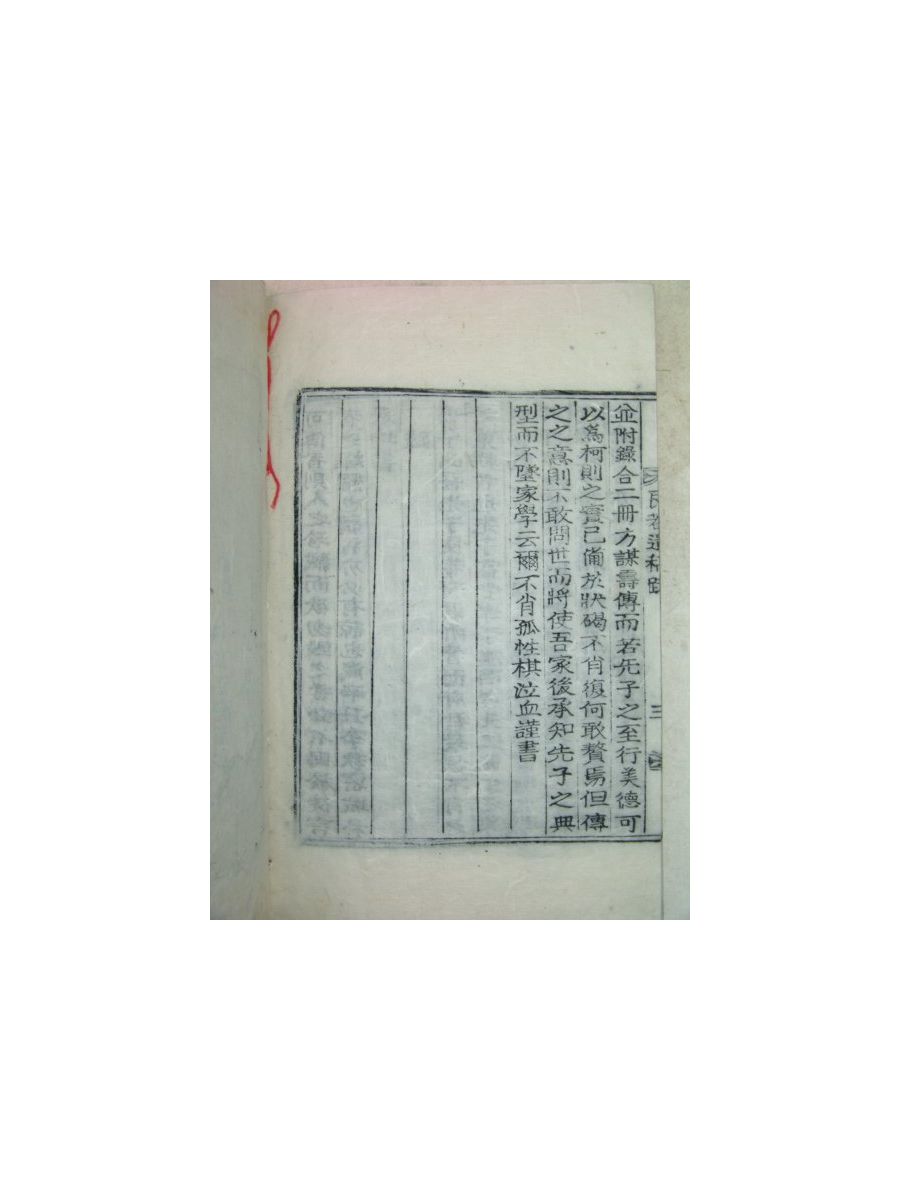 並附錄合二冊方謀壽傳而若先子之至行美德可
以爲柯則之實已備於狀碣不肖復何敢贅焉但傳
之之意則不敢問世而將使吾家後承知先子之典
型而不墜家學云爾不肖孤性棋泣血謹書
遺稿跋
三